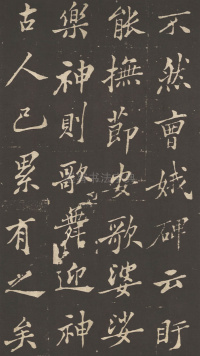 不然曹娥碑云盱
能撫節安歌婆娑
樂神則歌舞迎神
古人已累有之矣